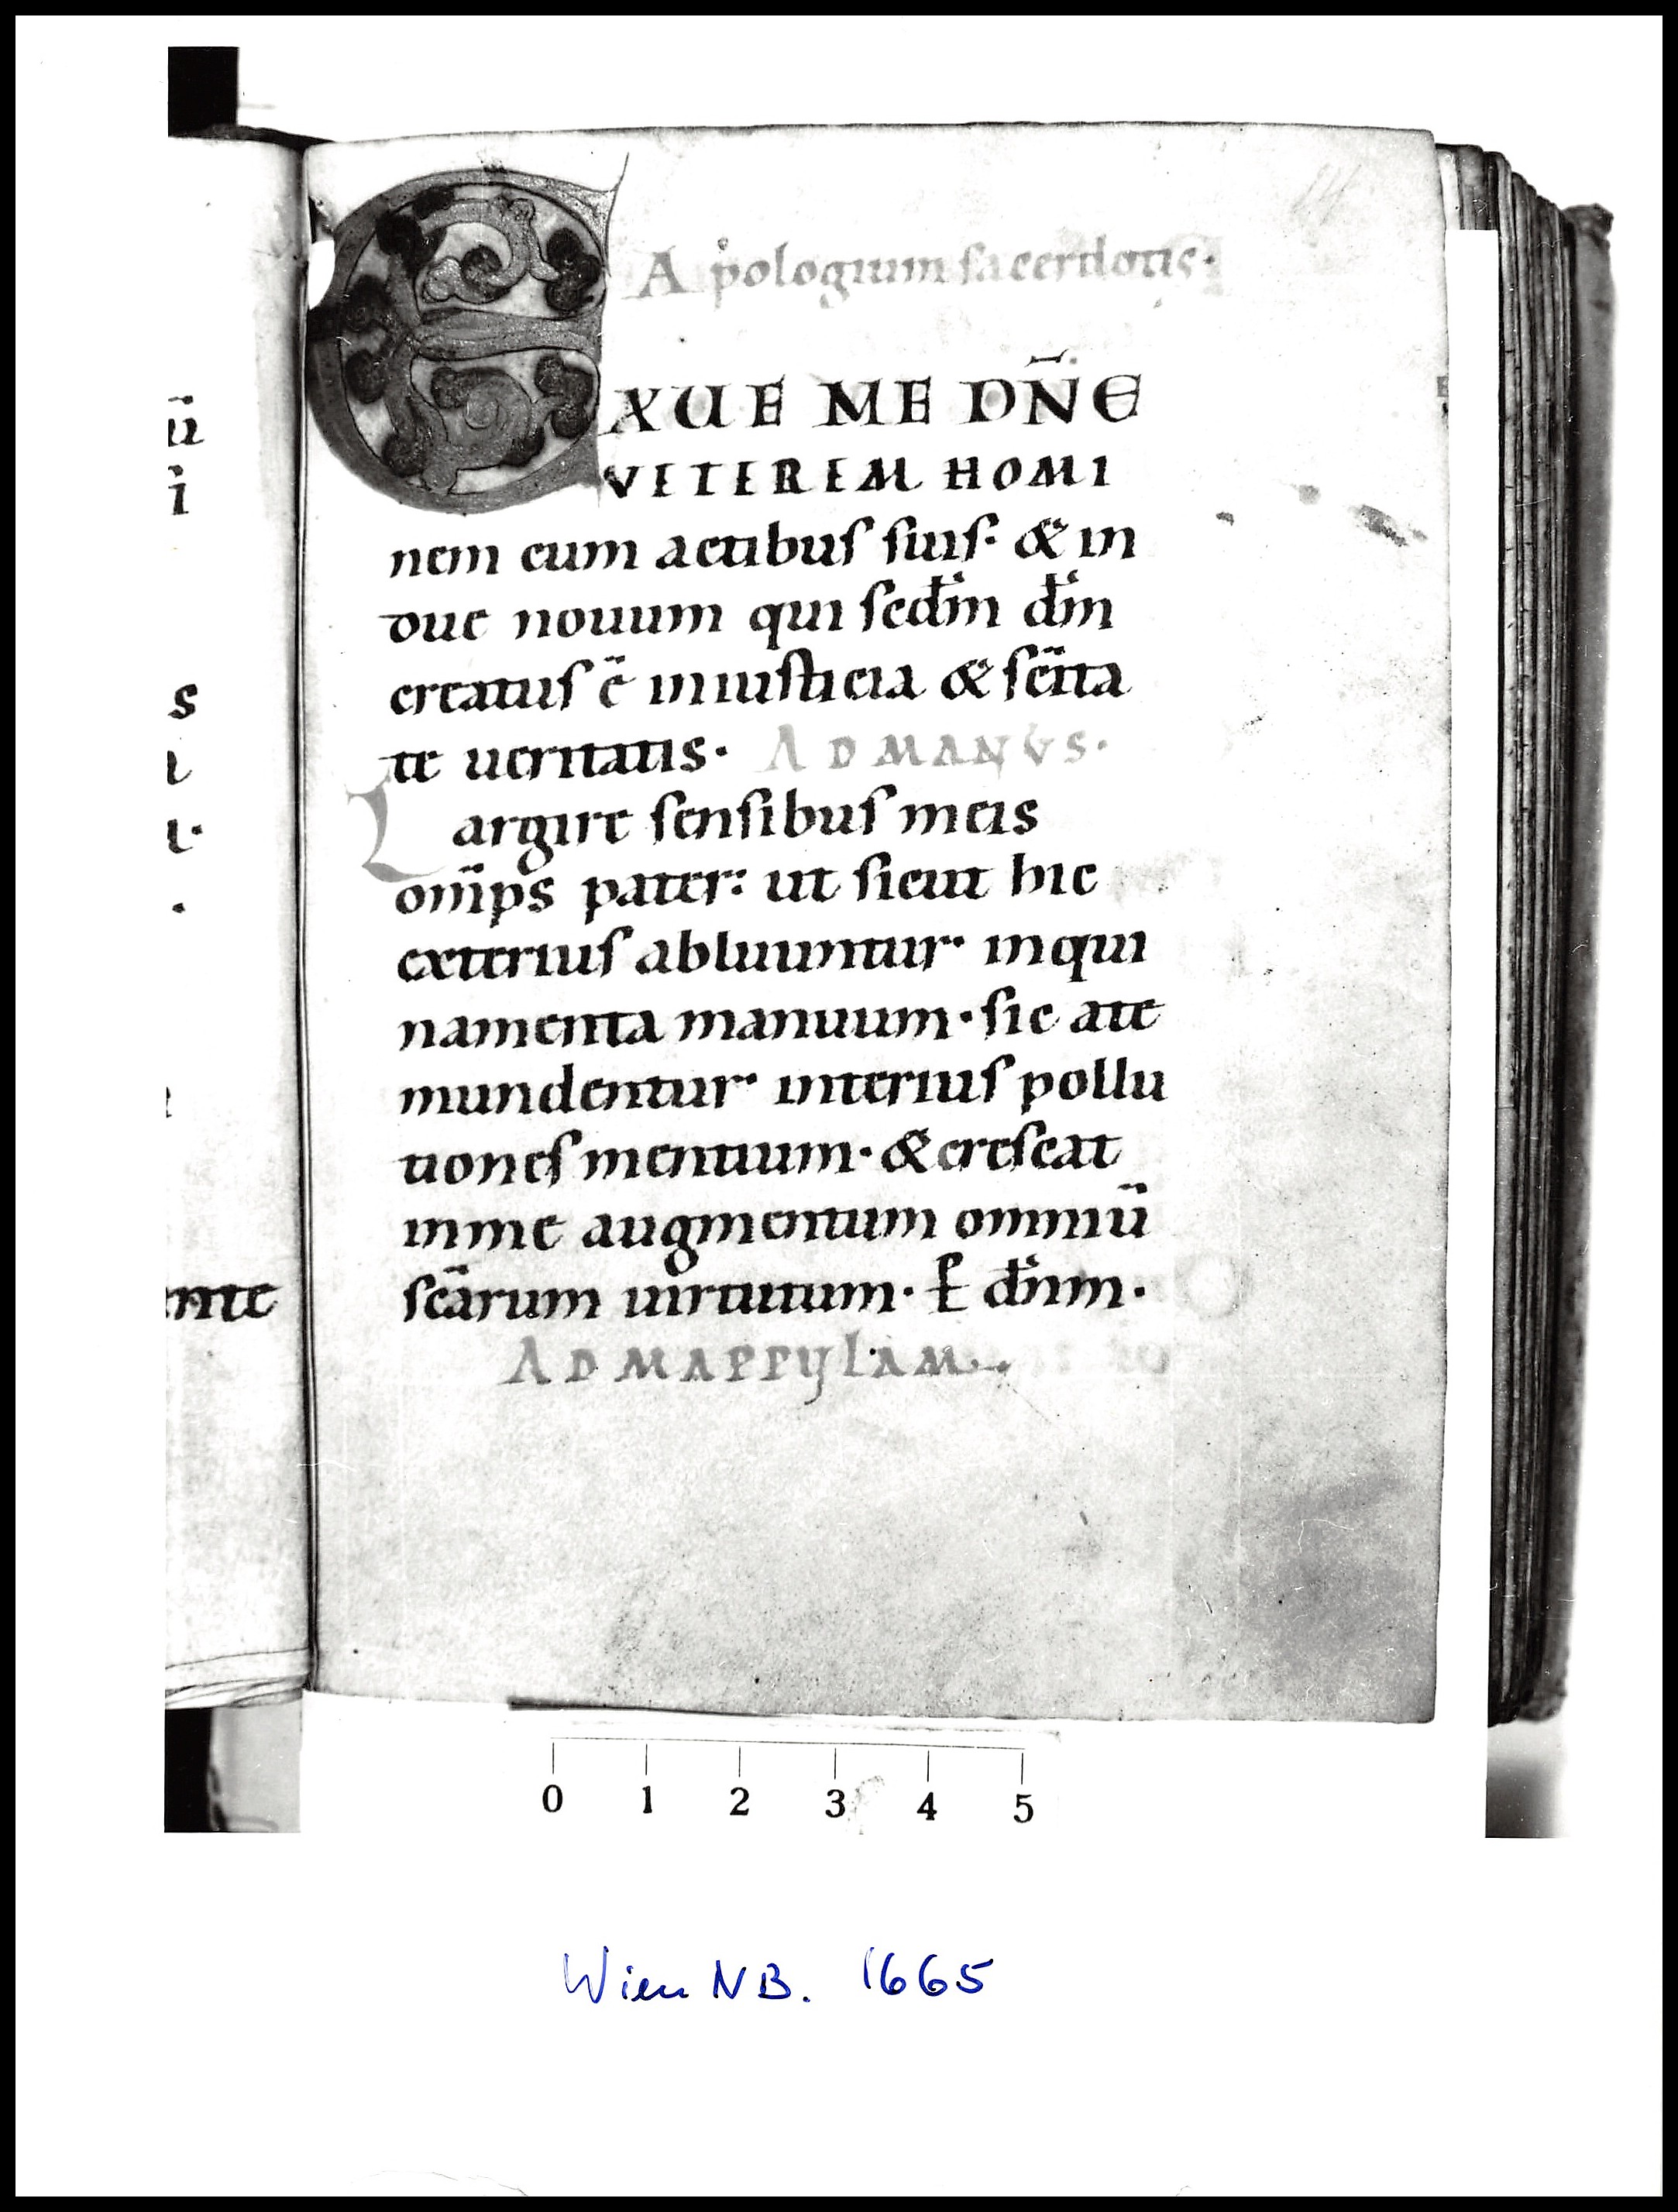 Apologium sacerdotis.
EXUE ME DN̄E
VETEREM HOMI
nem cum actibus suis: & in
due nouum qui scdm̄ dm̄
creatus ē in iusticia & scīta
te ueritatis. AD MANVS.
Largire sensibus meis
om̄ps pater: ut sicut hic
exterius abluuntur. inqui
namenta manuum. sic a te
mundentur. interius pollu
tiones mentium. & crescat
in me augmentum omniū
scārum uirtutum. P dn̄m.
AD MAPPULAM.
ente
0 1 2 3 4 5
Wien NB. 1665